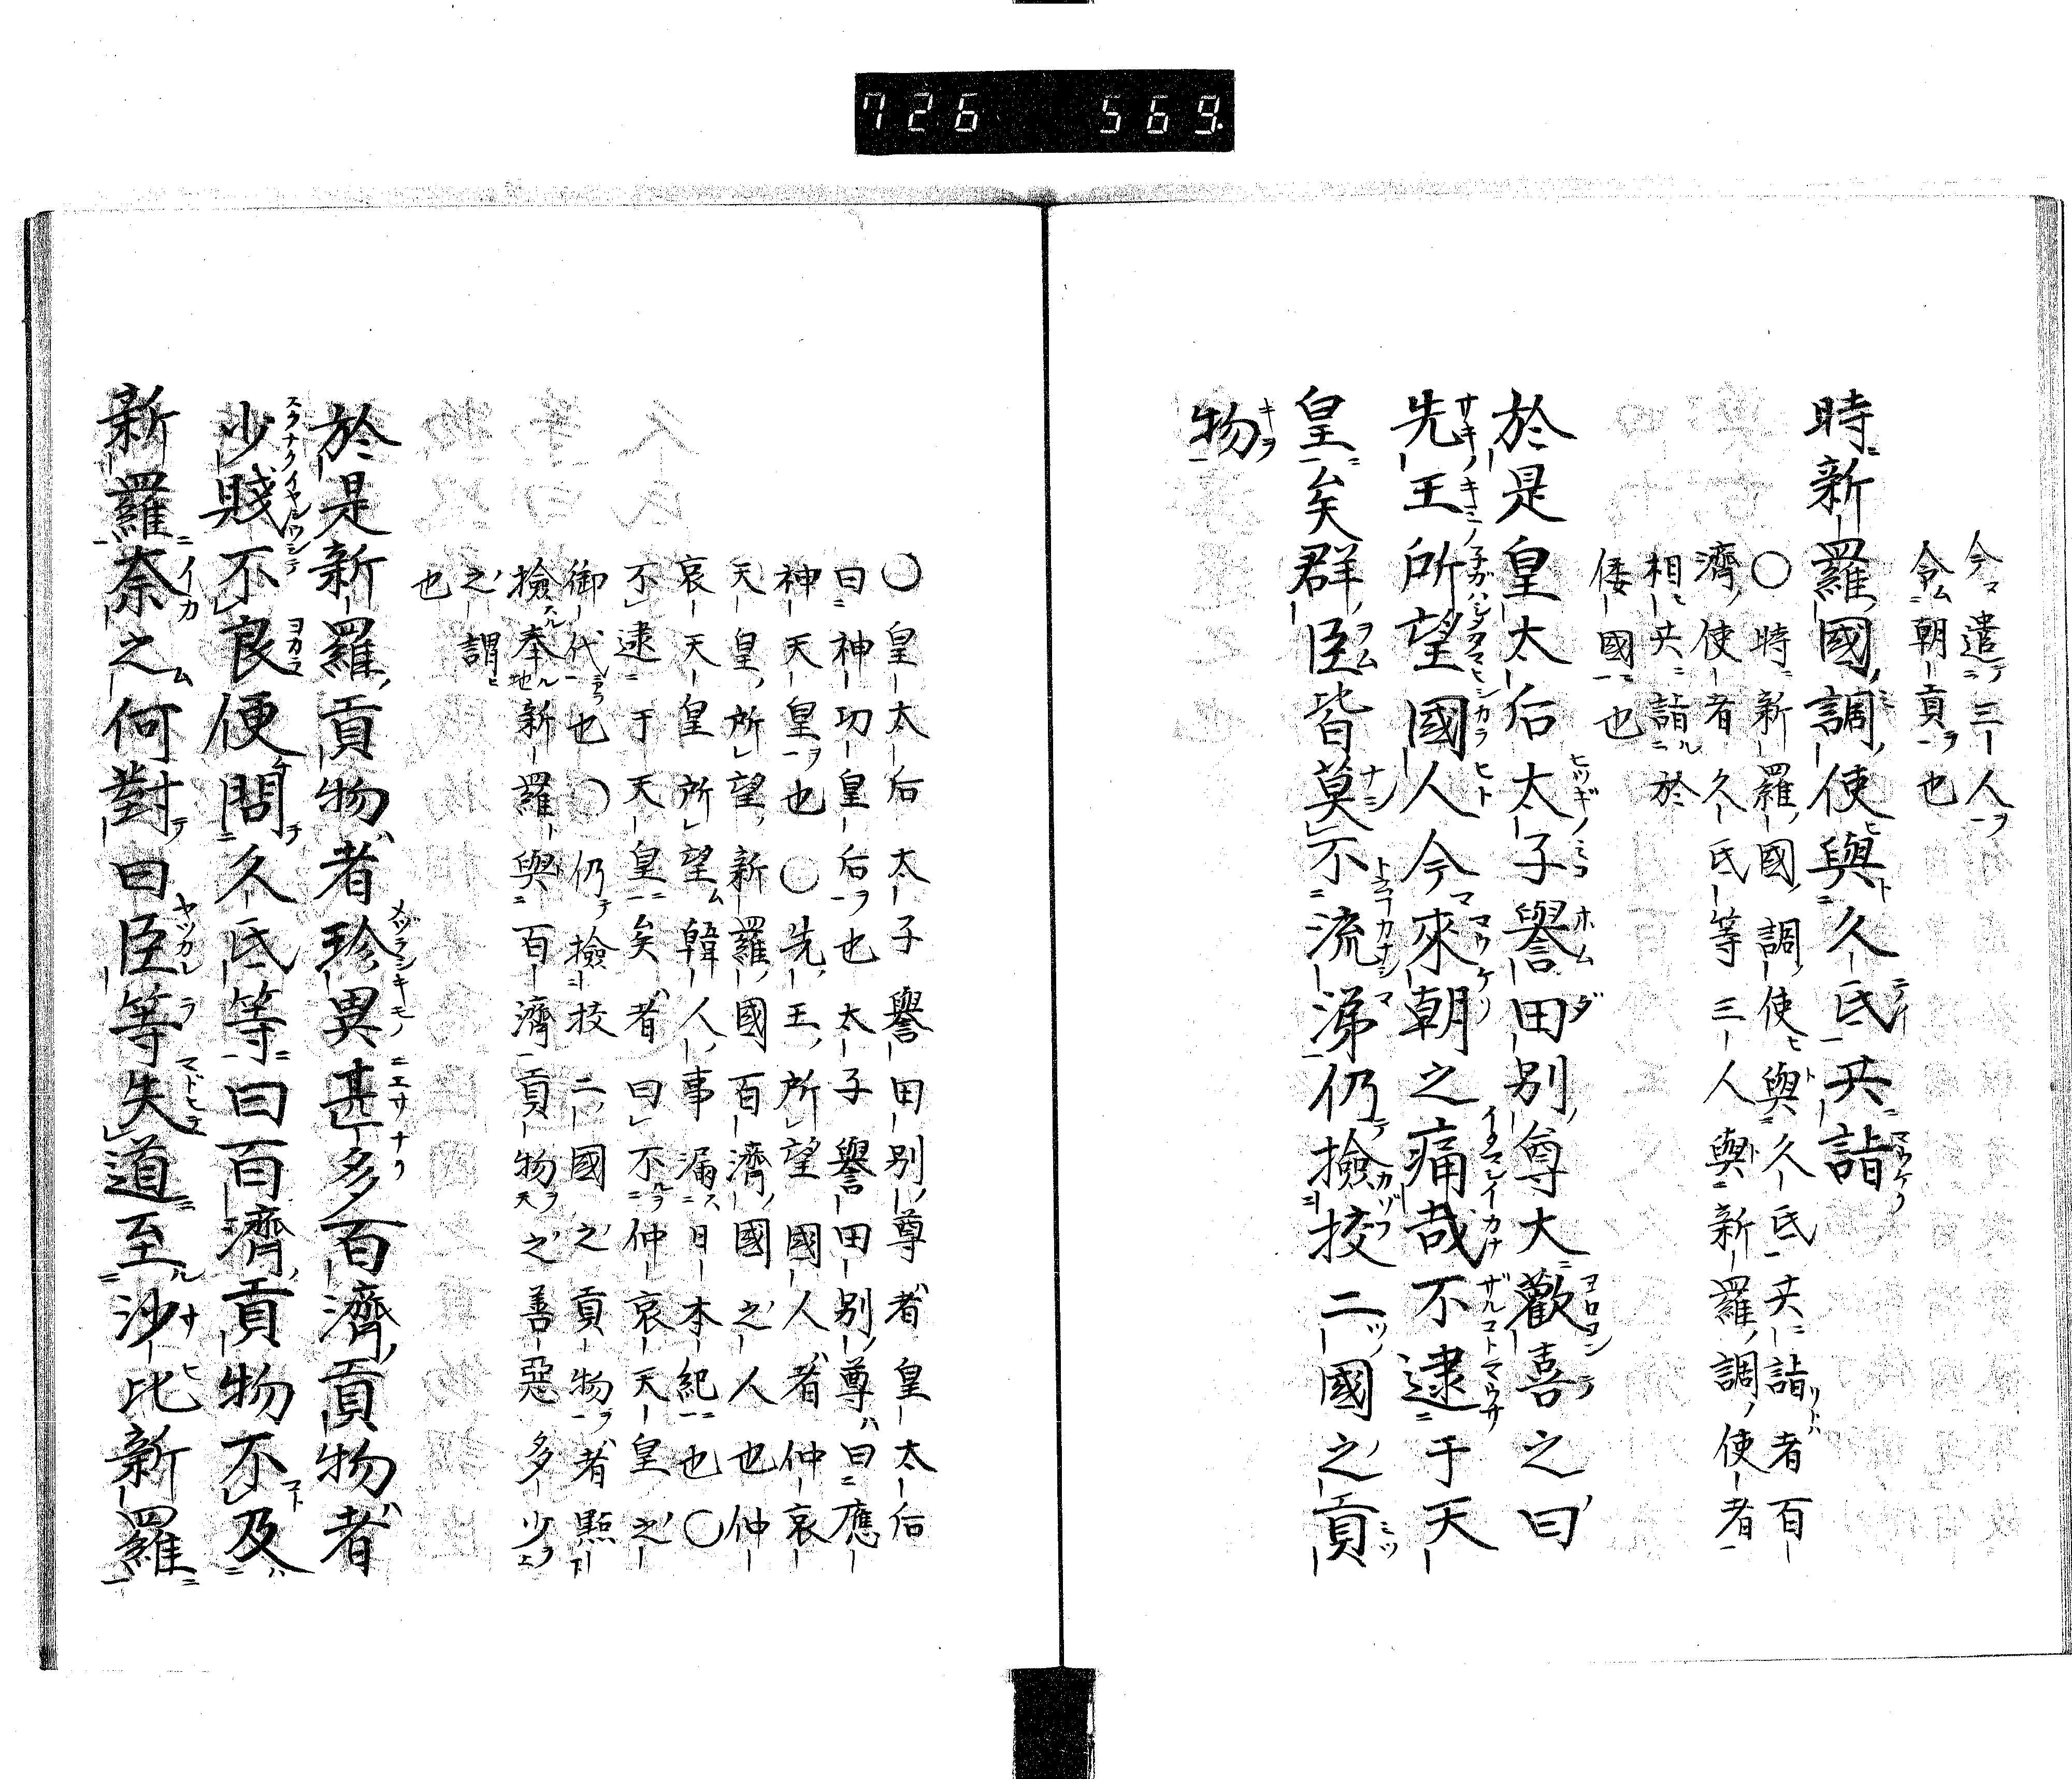 726 569.
今遣三人
令朝貢也
時新羅國調使與久氐共詣
〇時新羅國調使與久氐共詣者百
濟使者久氐等三人與新羅調使者
相共詣於
倭國也
於是皇太后太子譽田別尊大歡喜之曰
先王所望國人今來朝之痛哉不逮于天
皇矣群臣皆莫不流涕仍撿挍二國之貢
物
〇皇太后太子譽田別尊者皇太后
曰神功皇后也太子譽田別尊曰應
神天皇也〇先王所望國人者仲哀
天皇所望新羅國百濟國之人也仲
哀天皇所望韓人事漏日本紀也〇
不逮于天皇矣者曰不仲哀天皇之
御代也〇仍撿挍二國之貢物者點
撿奉新羅與百濟貢物之善惡多少
之謂
也
於是新羅貢物者珍異甚多百濟貢物者
少賤不良便問久氐等曰百濟貢物不及
新羅奈之何對曰臣等失道至沙比新羅